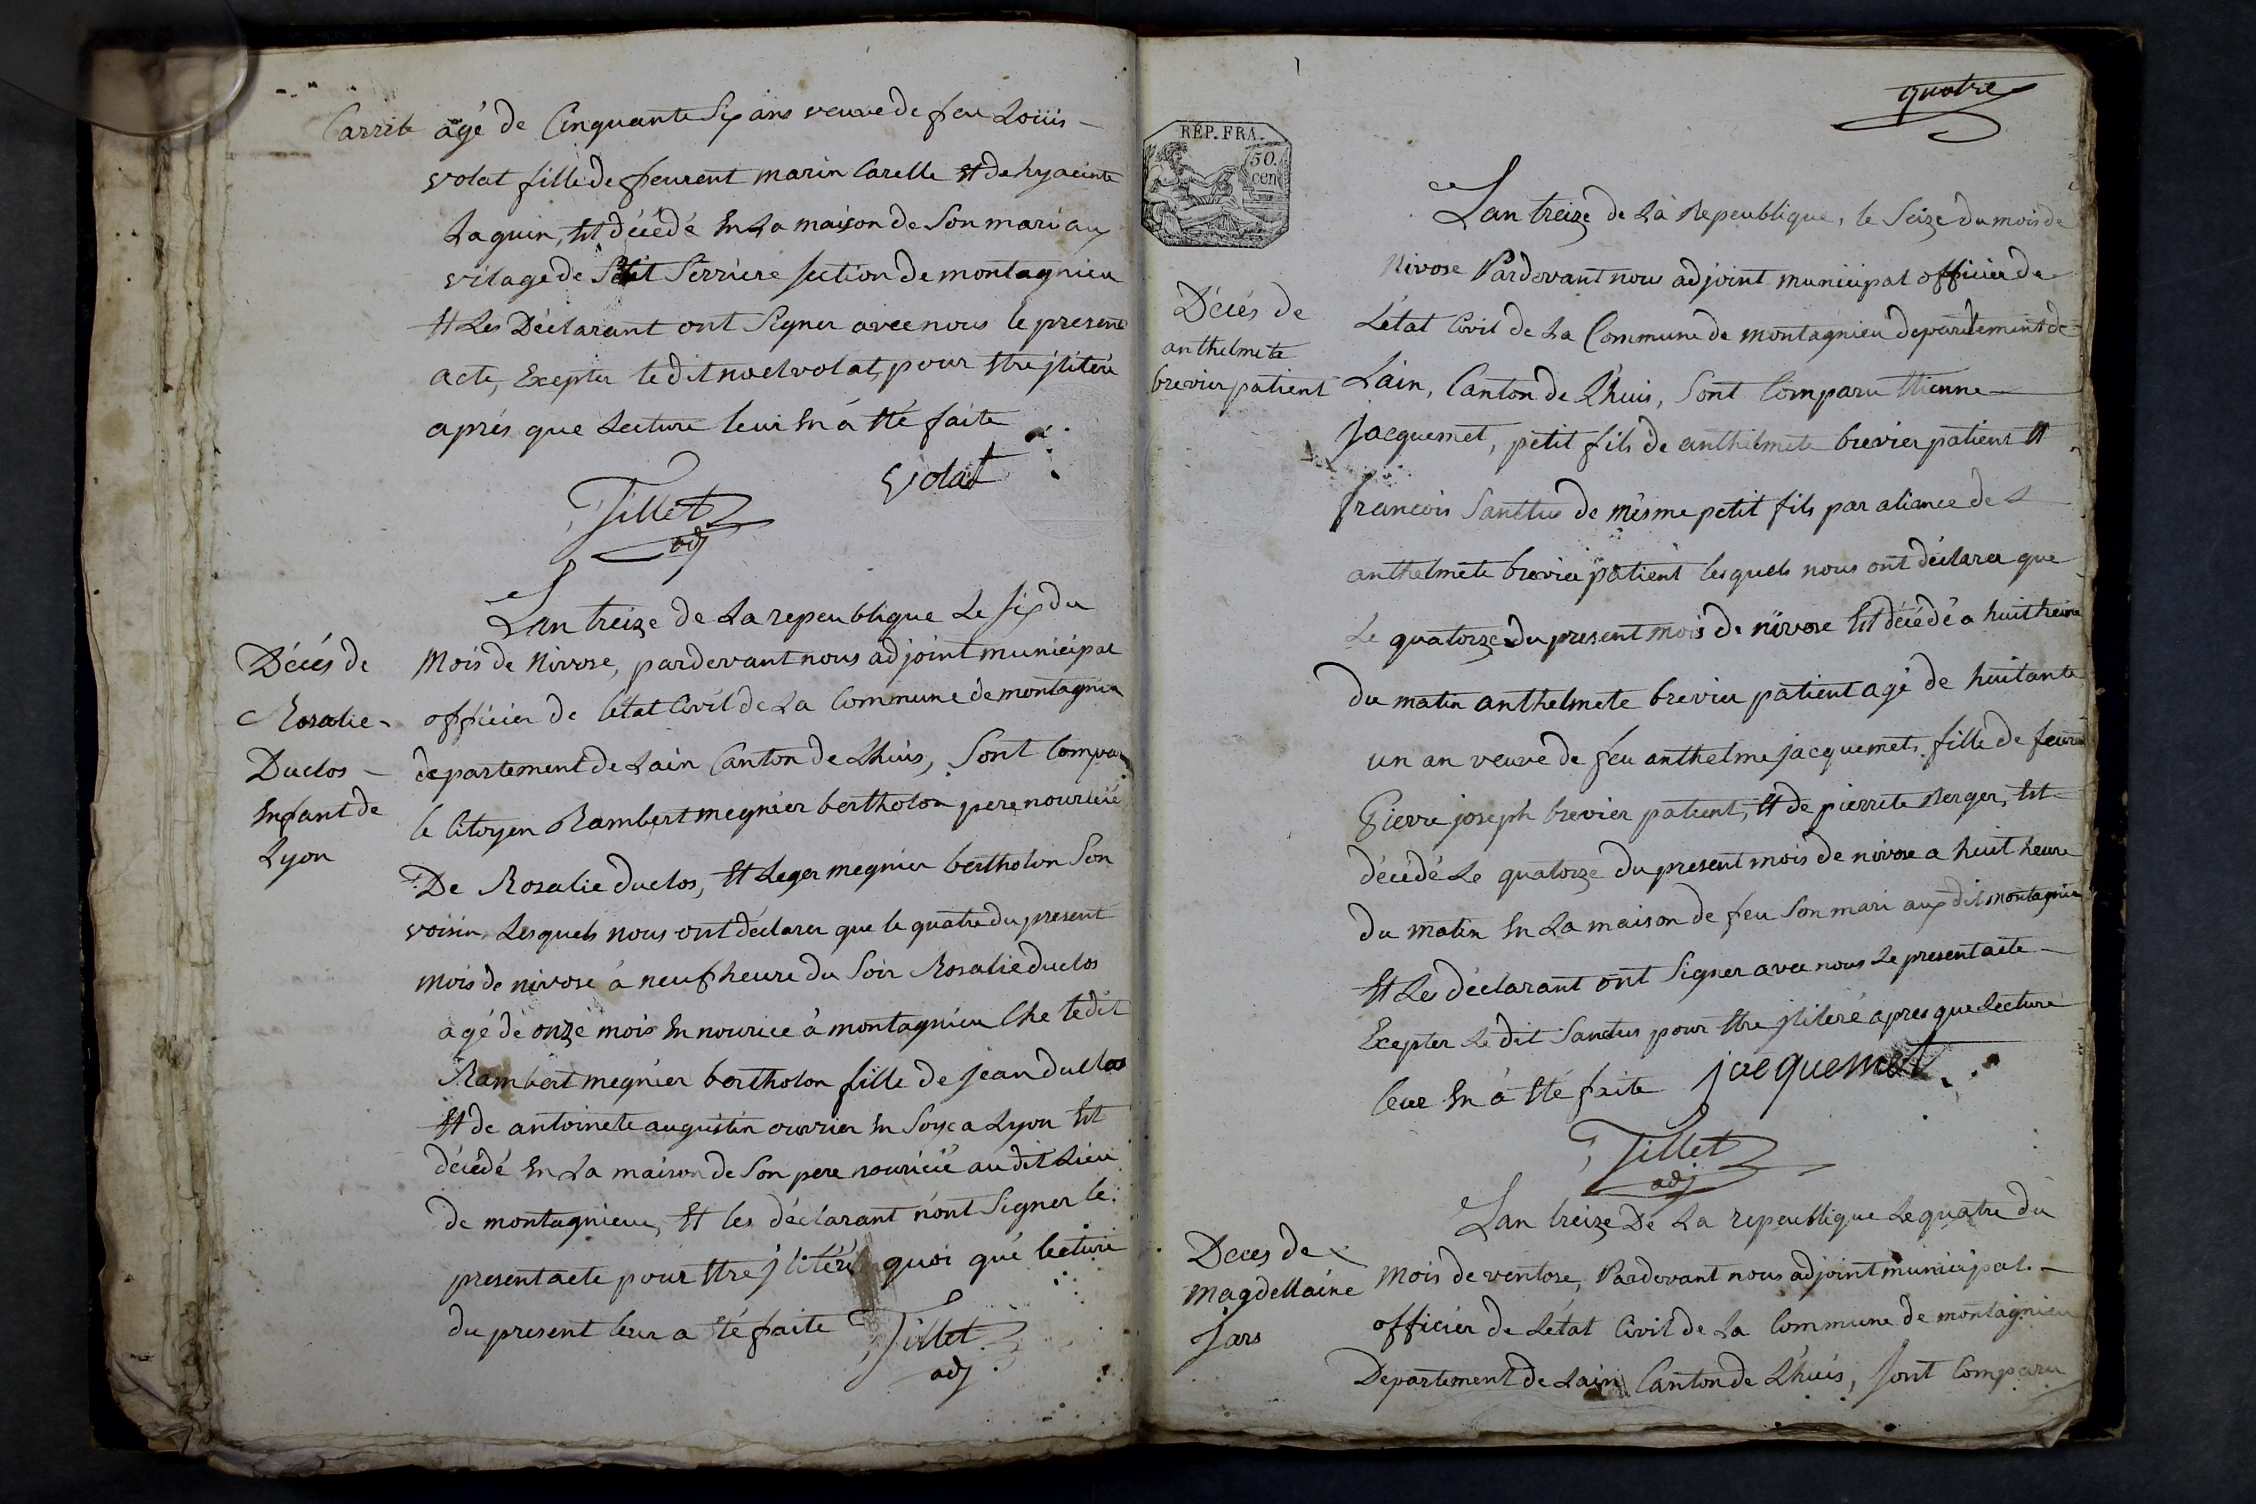 Carrite
agé de Cinquante Six ans veuve de feu Loüis
volat fille de feurent marin Carelle Et de hyacinte
Laquin, Est décédé En La maison de Son mari au
vilage de Serriere Section de montagnieu
Et Les Déclarant ont Signer avec nous le present
acte, Excepter le dit noel volat, pour Etre jlitéré
aprés que Lecture leur En á Eté faite
volat
Tillet
adj
Lan treize de La repeublique Le Six du
Décés de
Rosalie
Duclos
Enfant de
Lyon
Mois de Nivose, pardevant nous adjoint municipal
officier de létat Civil de La Commune de montagnieu
departement de Lain Canton de Lhuis, Sont Comparu
le Citoyen Rambert megnier bertholon pere nouricié
De Rosalie duclos, Et Leger megnier bertholon Son
voisin Lesquels nous ont déclarer que le quatre du present
mois de nivose á neuf heure du Soir Rosalie duclos
agé de onze mois En nourice á montagnieu Che le dit
Rambert megnier bertholon fille de jean duclos
Et de antoinete augustin ouvrier En Soye a Lyon Est
décédé En La maison de Son pere nouricié au dit Lieu
de montagnieu, Et les déclarant n'ont Signer le
present acte pour Etre jlitéré quoi que lecture
du present leur a Eté faite
Tillet
adj
quatre
RÉP. FRA.
50.
cen
Lan treize de La Repeublique, le Seize du mois de
Décés de
anthelmete
brevier patient
Nivose Pardevant nous adjoint municipal officier de
Létat Civil de La Commune de montagnieu departement de
Lain, Canton de Lhuis, Sont Comparu Etienne
Jacquemet, petit fils de anthelmete brevier patient Et
françois Sanctus de mésme petit fils par aliance de
anthelmete brevier patient lesquels nous ont déclarer que
Le quatorze du present mois de nivose Est décédé a huit heure
du matin anthelmete brevier patient agé de huitante
un an veuve de feu anthelme jacquemet, fille de feurent
Pierre joseph brevier patient, Et de pierrete Berger, Est
décédé Le quatorze du present mois de nivose a huit heure
du matin En La maison de feu Son mari au dit montagnieu
Et Les déclarant ont Signer avec nous Le present acte
Excepter Le dit Sanctus pour Etre jlitéré apres que Lecture
leur En á Eté faite jacquemet
Tillet
adj
Lan treize De La repeublique Le quatre du
Deces de
Magdellaine
Jars
Mois de ventose, Pardevant nous adjoint municipal
officier de Létat Civil de La Commune de montagnieu
Departement de Lain Canton de Lhuis, Sont Comparu